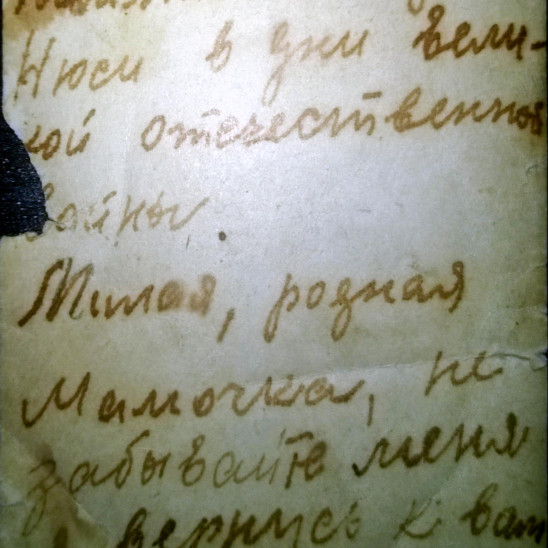 Нюси в дни вели-
кой отечественной
войны
Милая, родная
мамочка, не
забывайте меня
я вернусь к вам